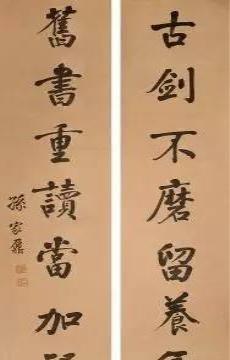 古剑不磨留養
舊書重讀當加
孫家鼐